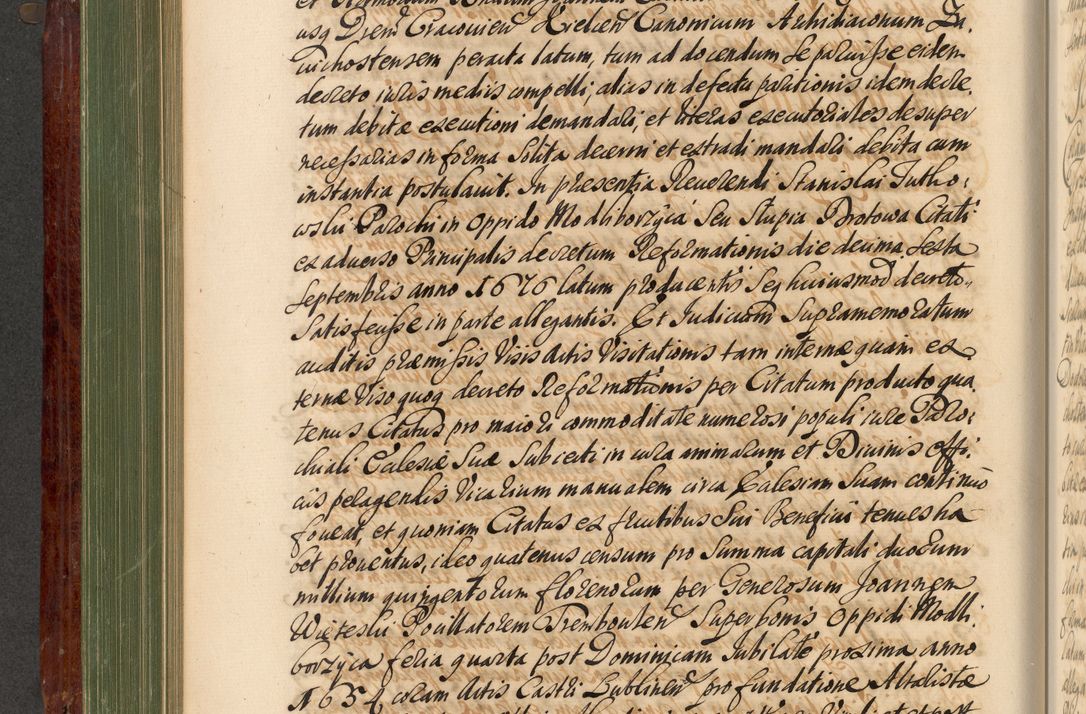 usq Diem Cracovien Kielcen Canonicum Archidiaconum Za,
vichostensem peracta latum, tum ad docendum se paruisse eidem
decreto iuris mediis compelli, alias in defectu paritionis idem decre,
tum debitæ executioni demandari, et literas executoriales desuper
necessarias in forma Solita decerni et extradi mandari debita cum
instantia postulavit. In presentia Reverendi Stanislai Tutko,
wski Parochi in oppido Modliborzyca seu Stupia Brotowa Citati
ex adverso Principalis decretum Reformationis die decima sexta
Septembris anno 1676 latum producentis Seq huiusmod decreto,
Satisfecisse in parte allegantis. Et Iudicium Supramemoratum
auditis præmissis Visis Actis Visitationis tam internæ quam ex
ternæ Viso quoq decreto Reformationis per Citatum producto qua
tenus Citatus pro maiori commoditate numerosi populi iure Paro,
chiali Ecclesiæ Suæ Subiecti in cura animarum et Divinis offi,
ciis peragendis Vicarium manualem circa Ecclesiam Suam continuo
foveat, et quoniam Citatus ex fructibus Sui Beneficii tenues ha
bet proventus, ideo quatenus censum pro Summa capitali duorum
millium quingentorum florenorum per Generosum Joannem
Wieteski Pocillatorem Trembowlen Super bonis oppidi Modli,
borzyca feria quarta post Dominicam Iubilate proxima anno
1654 coram Actis Castri Lublinen pro fundatione Altaristæ